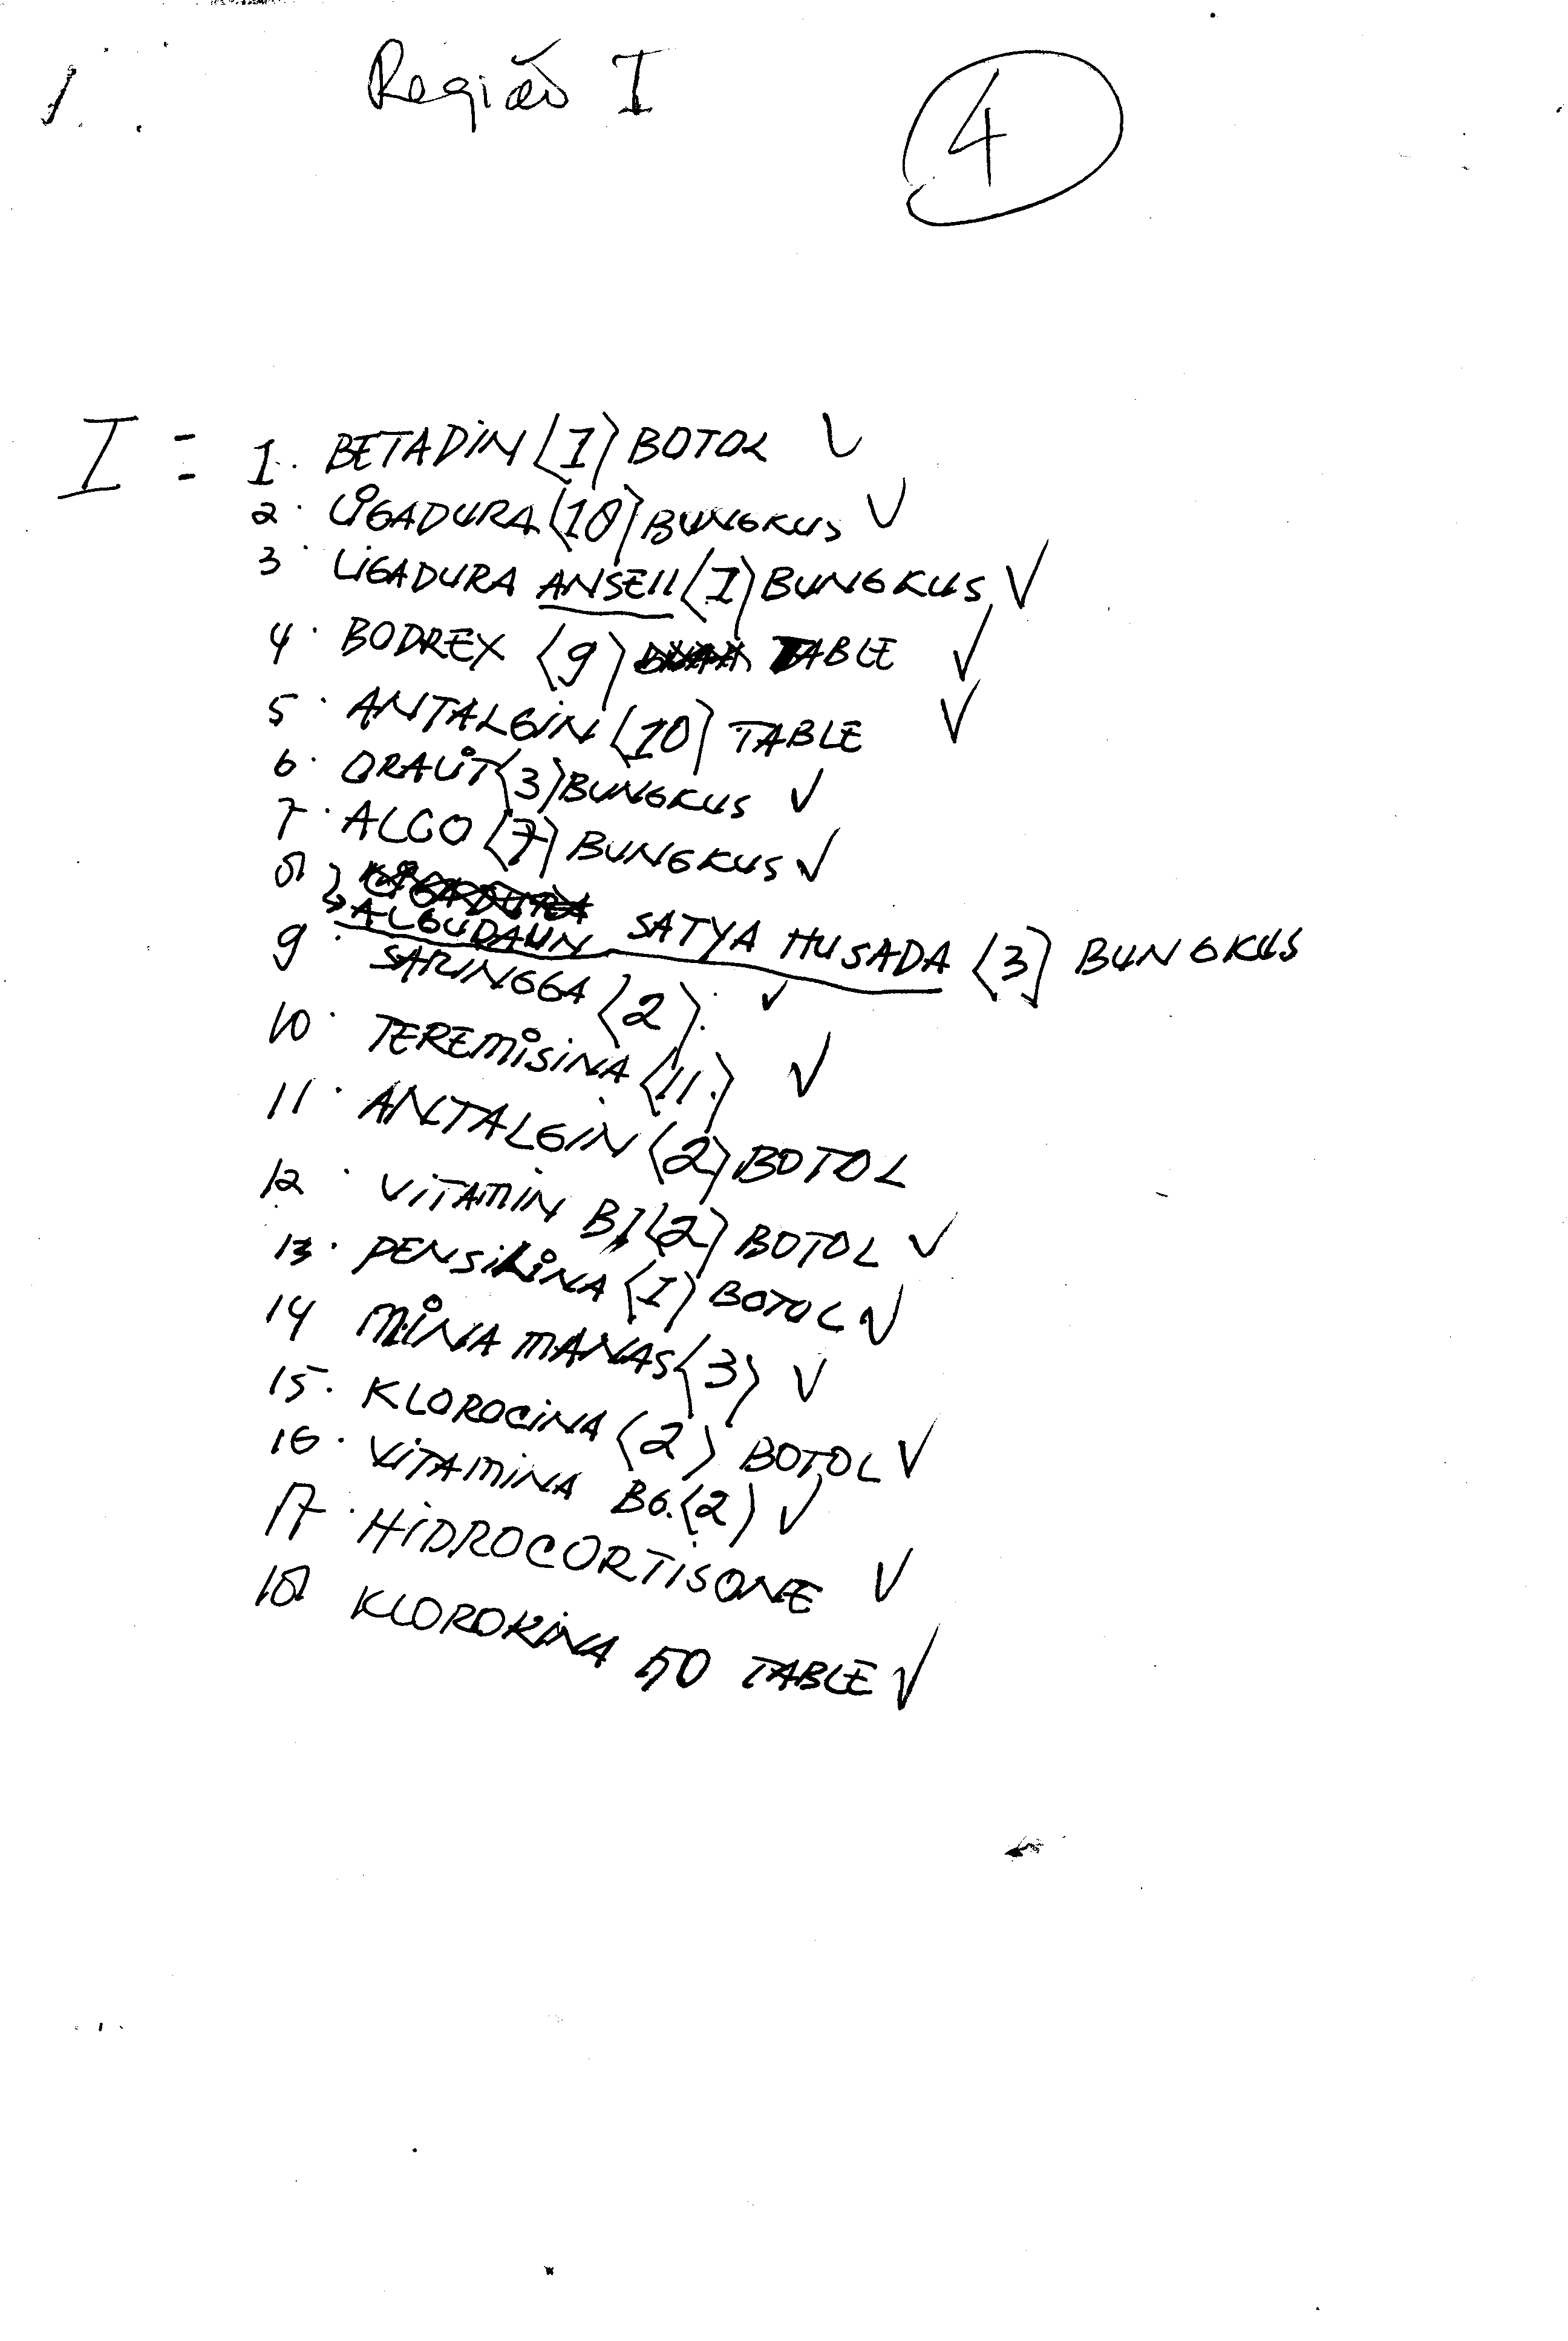 Região I
4
I = 1. BETADIN (I) BOTOL ✓
2. LIGADURA (10) BUNGKUS ✓
3. LIGADURA ANSELL (I) BUNGKUS ✓
4. BODREX (9) TABLE ✓
5. ANTALGIN (10) TABLE ✓
6. ORALIT (3) BUNGKUS ✓
7. ALCO (7) BUNGKUS ✓
8 ALGUDAUN SATYA HUSADA (3) BUNGKUS
9. SARINGGA (2). ✓
10. TEREMISINA (11.) ✓
11. ANTALGIN (2) BOTOL
12. VITAMIN B1 (2) BOTOL ✓
13. PENSILINA (I) BOTOL ✓
14 MINA MANAS (3) ✓
15. KLOROCINA (2) BOTOL ✓
16. VITAMINA B6. (2) ✓
17. HIDROCORTISONE ✓
18 KLOROKINA 50 TABLE ✓